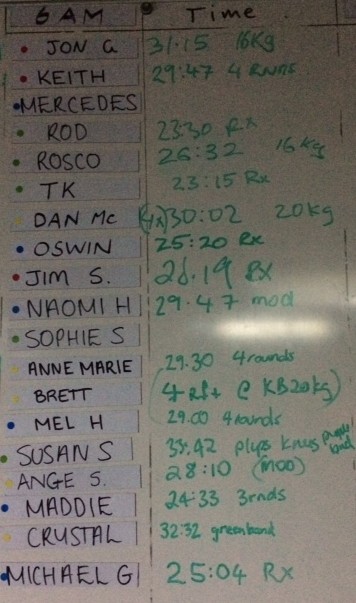 6 AM Time
JON G 31.15 16Kg
KEITH 29:47 4 RNDS
MERCEDES
ROD 23:30 Rx
ROSCO 26:32 16kg
TK 23:15 Rx
DAN Mc (4x) 30:02 20kg
OSWIN 25:20 Rx
JIM S. 26.19 Rx
NAOMI H 29.47 mod
SOPHIE S
ANNE MARIE 29.30 4rounds
BRETT (4 rds @ KB20kg)
MEL H 29.00 4rounds
SUSAN S 35.42 plyo knees purple band
ANGE S. 28:10 (MOD)
MADDIE 24:33 3rnds
CRYSTAL 32:32 greenband
MICHAEL G 25:04 Rx